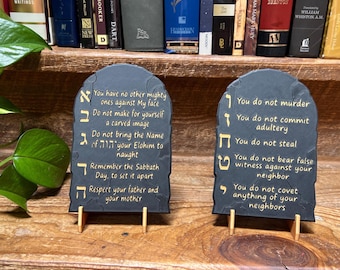 HOLY
WILLIAM
WHISTON, A.M.
א You have no other mighty
ones against My face
ב Do not make for yourself
a carved image
ג Do not bring the Name
of יהוה your Elohim to
naught
ד Remember the Sabbath
Day, to set it apart
ה Respect your father and
your mother
ו You do not murder
ז You do not commit
adultery
ח You do not steal
ט You do not bear false
witness against your
neighbor
י You do not covet
anything of your
neighbors